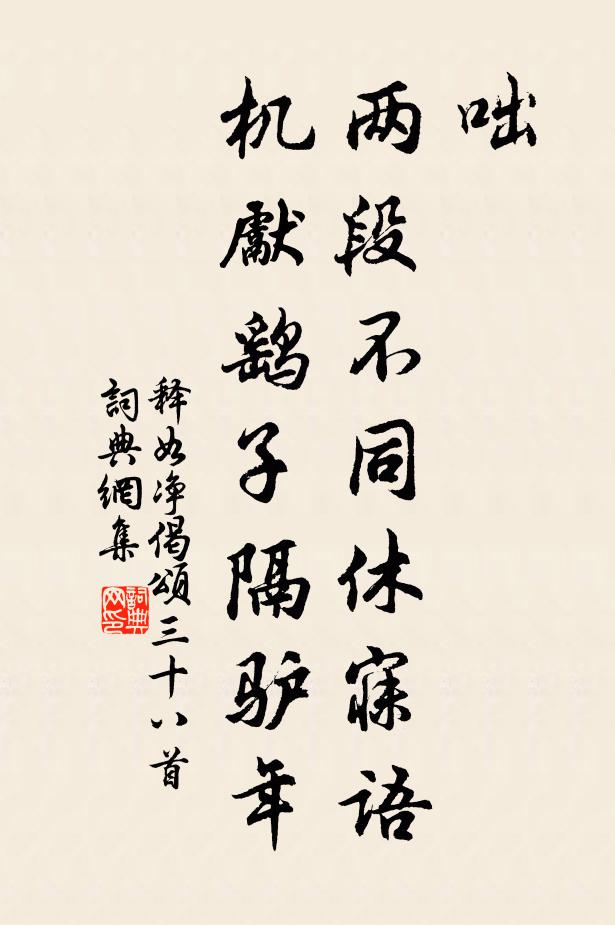 咄
两段不同休寐语
机獻鹞子隔驴年
释如净偈颂三十八首
詞典網集
詞典网印